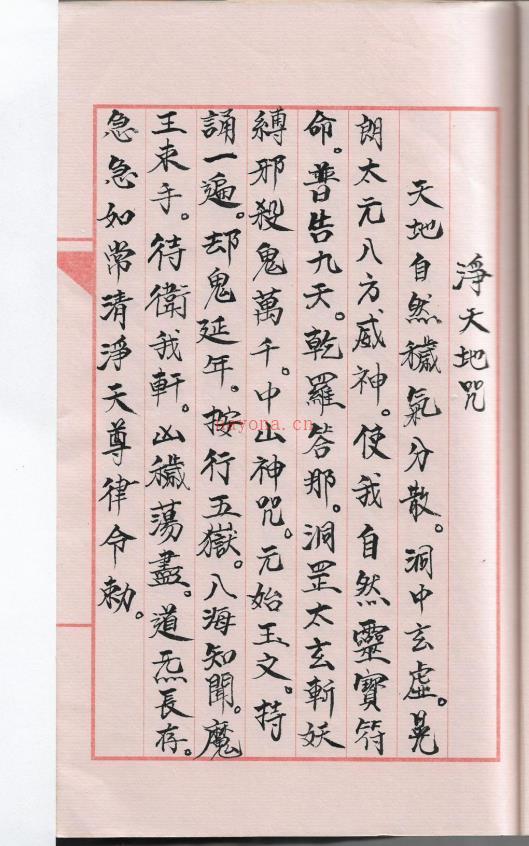 淨天地咒
天地自然穢氣分散。洞中玄虛。晃
朗太元八方威神。使我自然靈寶符
命。普告九天。乾羅答那。洞罡太玄斬妖
縛邪殺鬼萬千。中山神咒。元始玉文。持
誦一遍。却鬼延年。按行五嶽。八海知聞。魔
王束手。待衛我軒。凶穢蕩盡。道炁長存。
急急如常清淨天尊律令勅。